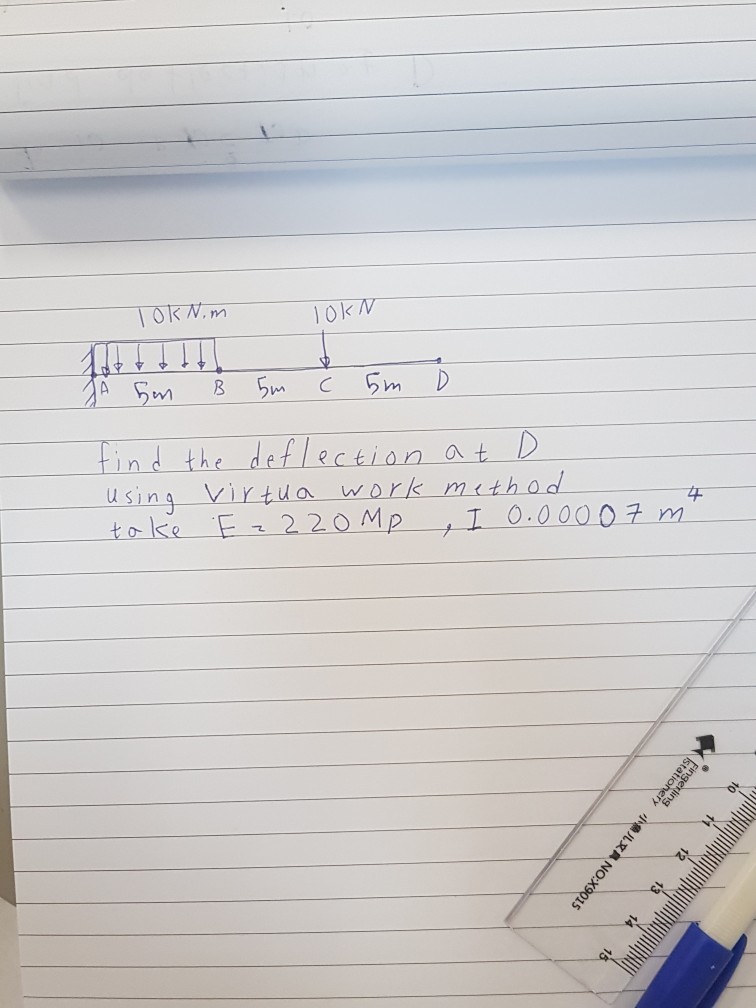 10kN.m 10kN
A 5m B 5m C 5m D
find the deflection at D
using virtua work method
take E = 220 Mp , I 0.00007 m⁴
Fingerling
stationery
NO:X9015
10
11
12
13
14
15